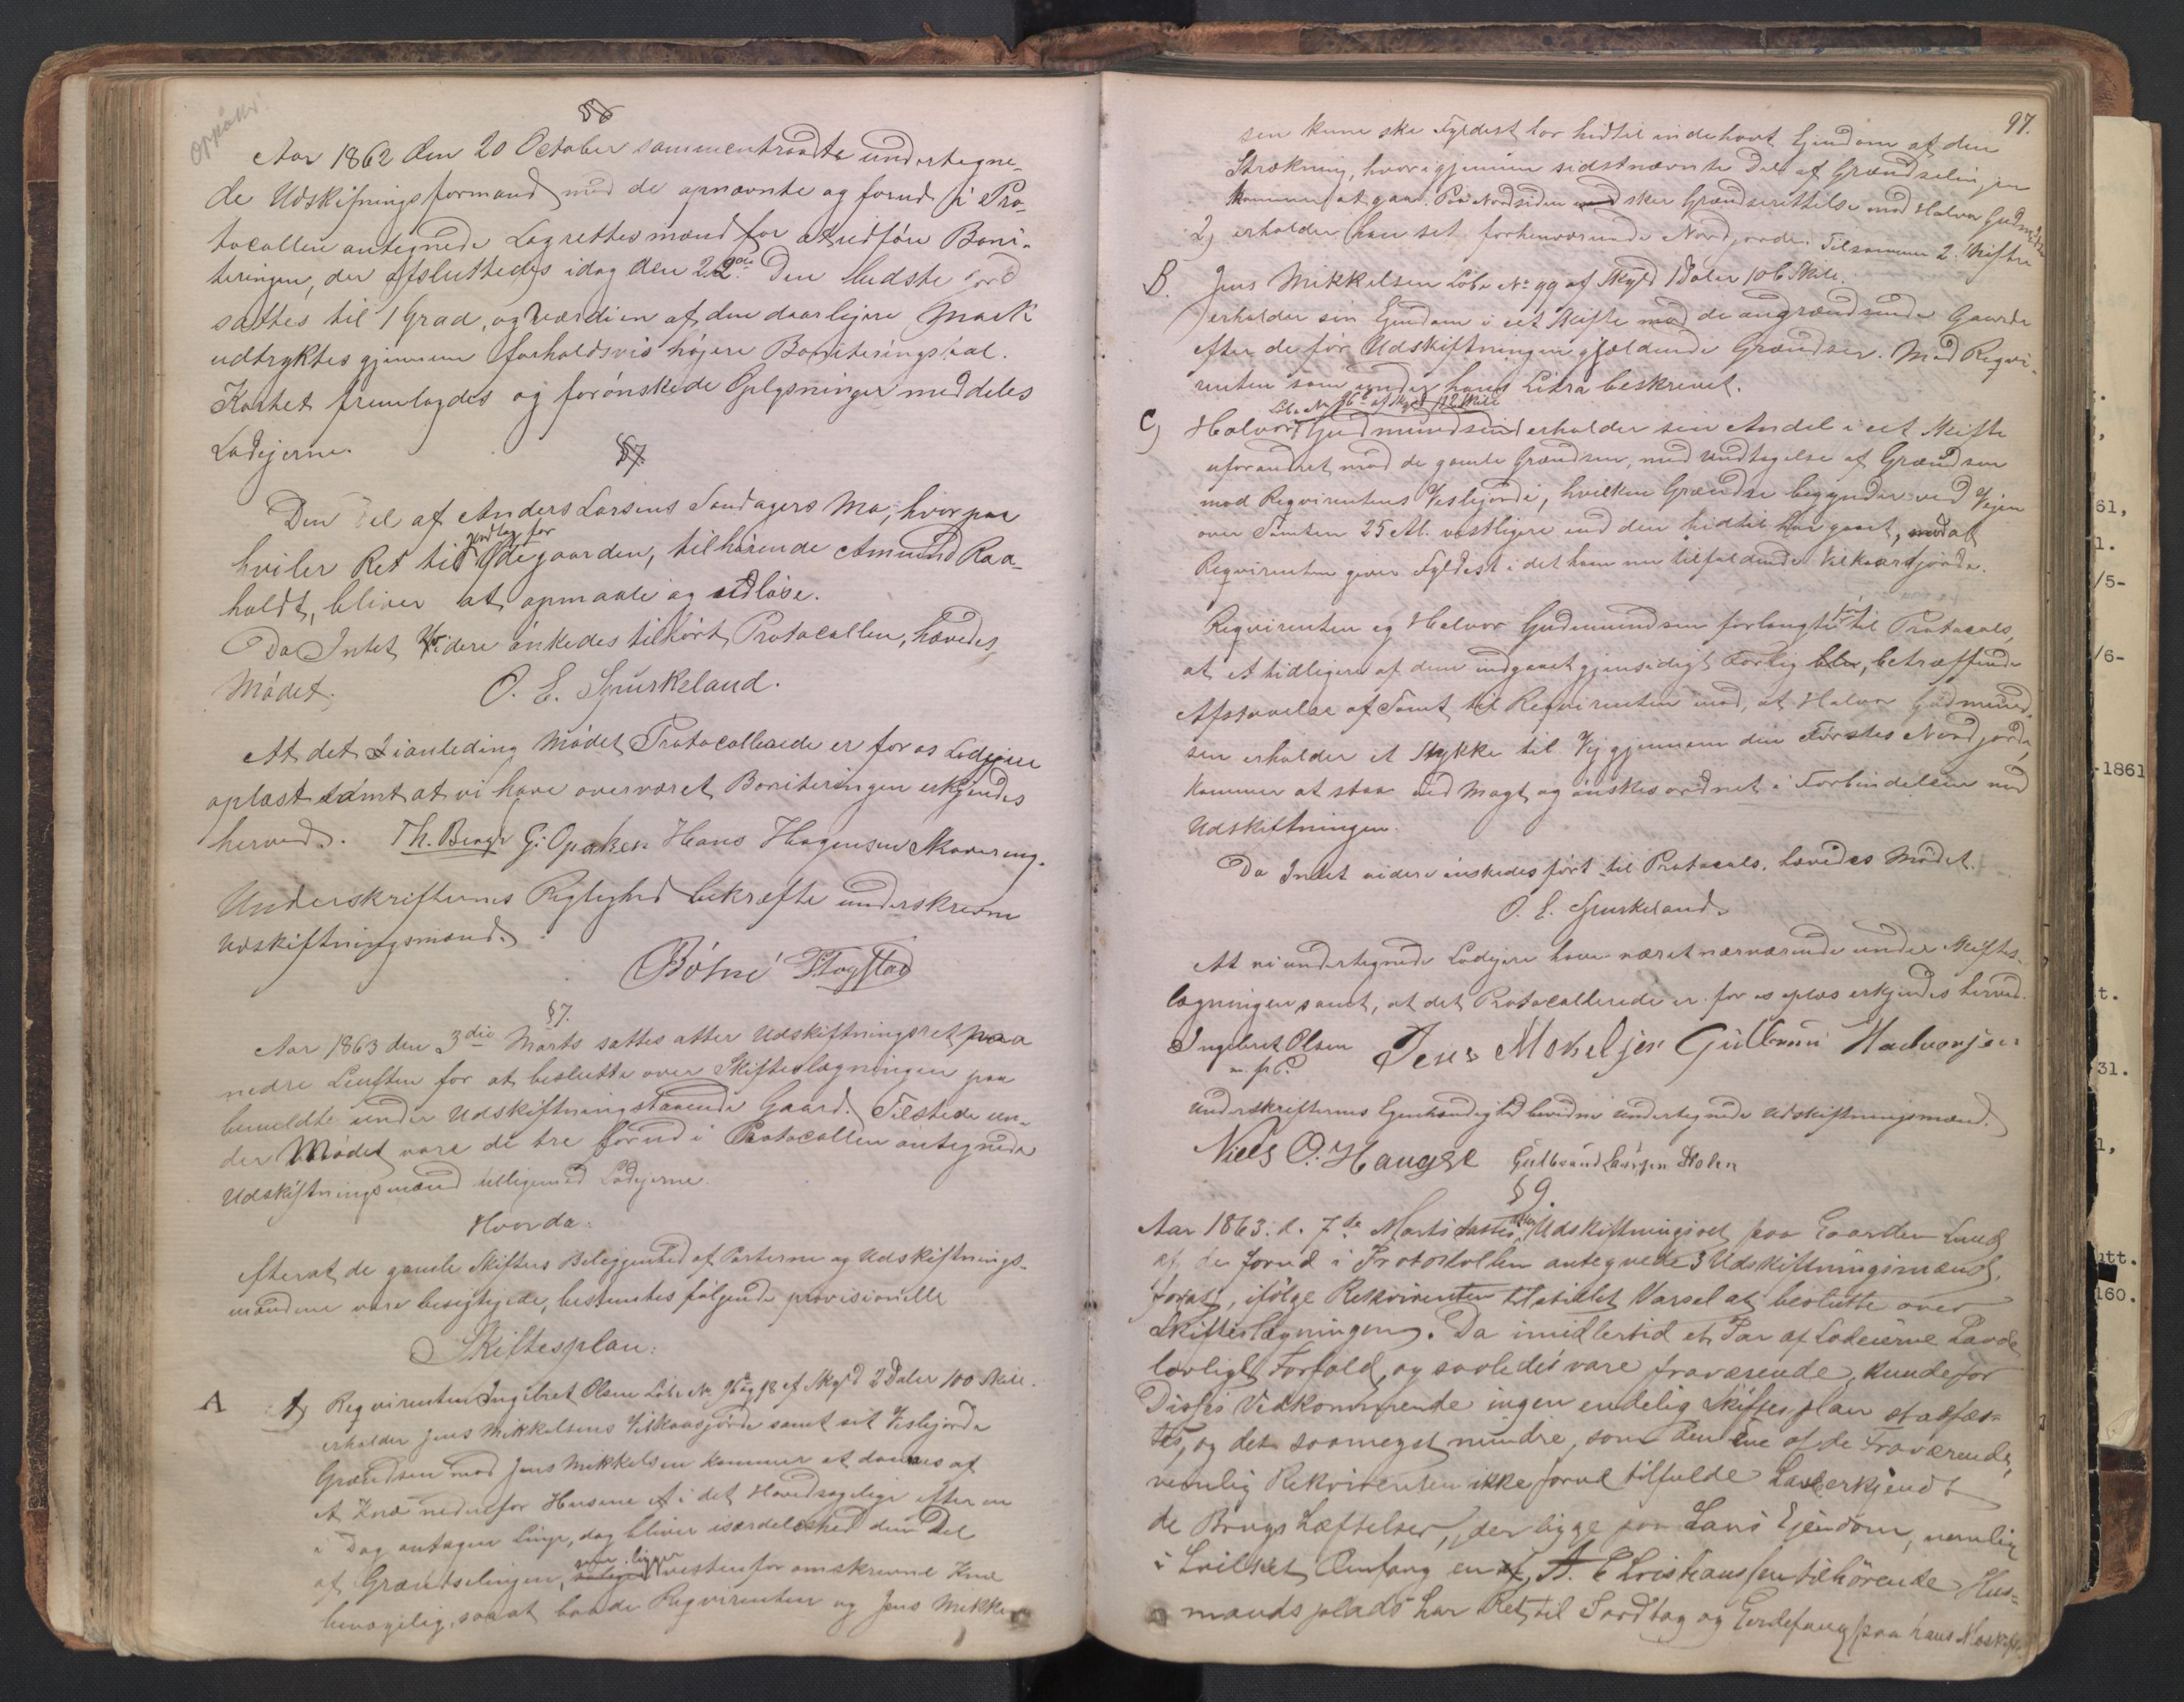 Oppaker
§6
Aar 1862 den 20 October sammentraadte undertegne-
de Udskifningsformand med de opnævnte og forud i Pro-
tocollen antegnede Lagrettesmænd for at udföre Boni-
teringen, der afsluttedes idag den 22de. Den bedste Jord
sattes til 1 Grad, og Værdien af den daarligere Mark
udtryktes gjennem forholdsvis höjere Boniteringstal.
Kartet fremlagdes og forönskede Oplysninger meddeles
Lodejerne.
§7.
Den Del af Anders Larsens Sandagers Mo, hvorpaa
hviler Ret til Jordtag for Ödegaarden, tilhörende Amund Raa-
holdt, bliver at opmaale og udlöse.
Da Intet Videre önskedes tilfört Protocollen, hævedes
Mödet.
O. E. Spurkeland.
At det i anleding Mödet Protocollerede er for os Lodejere
oplæst samt at vi have overværet Boniteringen erkjendes
herved. Th. Berger G. Opaker Hans Hagensen Skovereng.
Underskrifternes Rigtighed bekræfte underskrevne
Udskiftningsmænd.
§7.
Aar 1863 den 3die Marts sattes atter Udskiftningsret paa
nedre Lensten for at beslutte over Skifteslægningen paa
bemeldte under Udskiftning staaende Gaard. Tilstede un-
der Mödet vare de tre forud i Protocollen antegnede
Udskiftningsmænd tilligemed Lodejerne.
Hvorda:
Efterat de gamle Skifters Beliggenhed af Parterne og Udskiftnings-
mændene vare besigtigede, bestemtes fölgende provisionelle
Skiftesplan:
A 1) Reqvirenten Ingebret Olsen Löbe No 96a og 98 af Skyld 2 Daler 100 Skill.
erholder Jens Mikkelsens Vilkaarsjörde samt sit Veslejorde
Grændsen mod Jens Mikkelsen kommer at dannes af
et Knæ nedenfor Husene et i det Hovedsagelige efter en
i Dag antagen Linje, dog bliver isærdeleshed den Del
af Grændselinjen, som ligger vestenfor omskrevne Knæ
bevægelig, saaat baade Reqvirenten og Jens Mikkel-
97.
sen kunne ske Fyldest for hidtil indehavt Ejendom af den
Strækning, hvorigjennem sidstnævnte Del af Grændselinjen
kommer at gaa. Paa Nordsiden sker Grændserettelse med Halvor Gudmundsen
2) erholder han sit forhenværende Nordjorde. Tilsammen 2 Skifter
B. Jens Mikkelsen Löbe No 99 af Skyld 1 Daler 106 Skill.
erholder sin Ejendom i eet Skifte mod de angrændsende Gaarde
efter de för Udskiftningen gjældende Grændser. Mod Reqvi-
renten som under hans Litra beskrevet.
Löbe No 96b af Skyld 112 Skill
C) Halvor Gudmundsen erholder sin Andel i eet Skifte
uforandret mod de gamle Grændser, med Undtagelse af Grændsen
mod Reqvirentens Veslejorde, hvilken Grændse begynder ved Vejen
over Tomten 25 Al. vestligere end den hidtil har gaaet, mod at
Reqvirenten giver Fyldest i det ham nu tilfaldende Vilkaarsjörde.
Reqvirenten og Halvor Gudmundsen forlangte fört til Protocols,
at et tidligere af dem indgaaet gjensidigt Forlig blev, betræffende
Afstaaelse af Tomt til Reqvirenten mod, at Halvor Gudmund-
sen erholder et Stykke til Vej gjennem den Förstes Nordjorde,
kommer at staa ved Magt og önskes ordnet i Forbindelsen med
Udskiftningen.
Da Intet videre önskedes fört til Protocols, hævedes Mödet.
O. E. Spurkeland.
At vi undertegnede Lodejere have været nærværende under Skiftes-
lægningen samt, at det Protocollerede er for os oplæst erkjendes herved.
Ingebret Olsen Jens Mekelsen Gulbran Halvorsen
m. p. P.
Underskrifternes Egenhændighed bevidne undertegnede Udskiftningsmænd.
Niels O. Haugse Gulbrand Larsen Holen
§ 9.
Aar 1863. d. 7de Marts sattes atter Udskiftningsret paa Gaarden Lund
af de forud i Protokollen antegnede 3 Udskiftningsmænd,
forat, ifölge Rekvirenten tilstillet Varsel at beslutte over
Skifteslægningen. Da imidlertid et Par af Lodeierne havde
lovligt Forfald, og saaledes vare fraværende, kunde for
Disses Vedkommende ingen endelig Skiftesplan stadfæs-
tes, og det saameget mindre, som den ene af de Fraværende,
nemlig Rekvirenten ikke forud tilfulde har erkjendt
de Brugs Hæftelser, der ligge paa hans Ejendom, nemlig
i hvilket Omfang en A. Christianssen tilhörende Hus-
mandsplads har Ret til Jordtag og Gjerdefang paa hans
61,
1.
/5-
/6-
-1861
t.
31.
1,
att.
160.